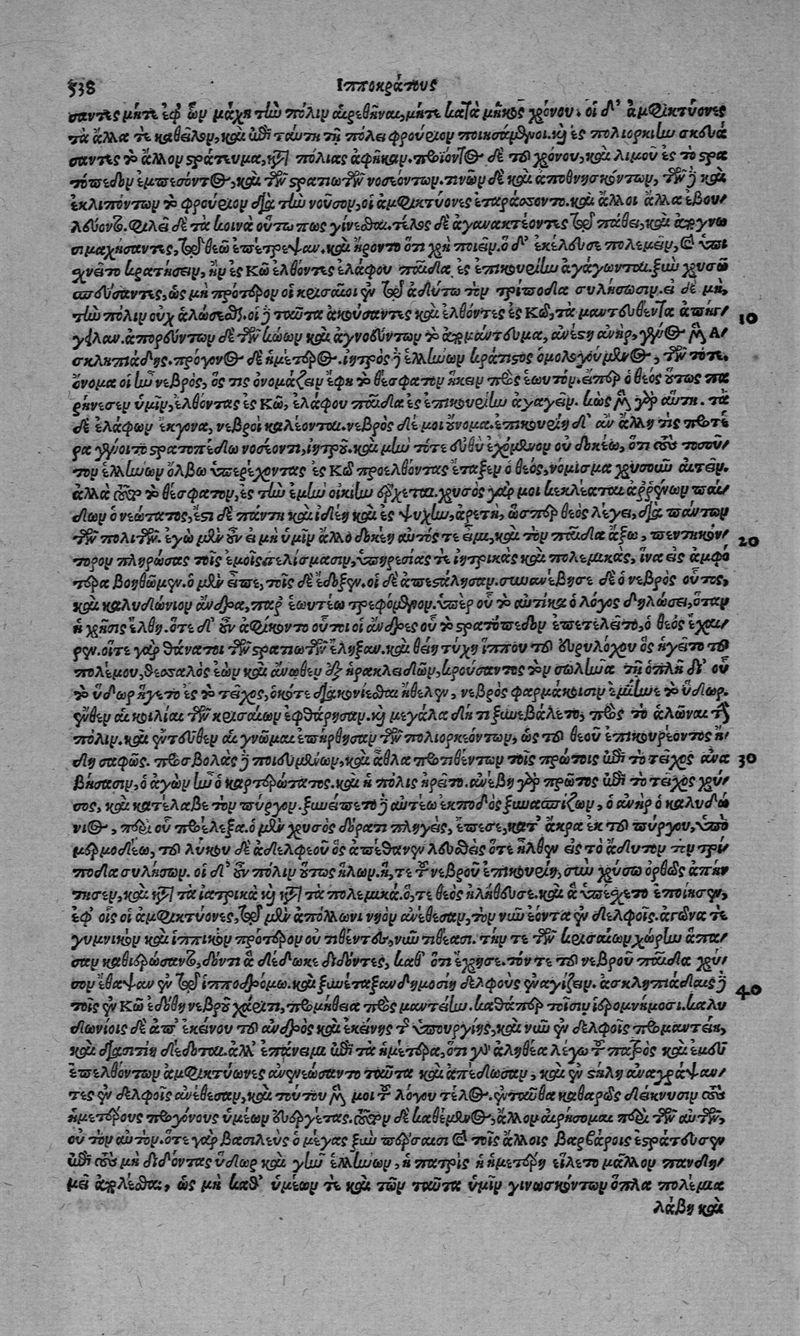 538 Ιπποκράτους
σαντες μήτε ἐφ' ὧν μάχη τὴν πόλιν αἱρεθῆναι, μήτε κατὰ μῆκος χρόνου. οἱ δ' ἀμφικτύονες
τὰ ἄλλα τε καθεῖλον, καὶ ἐπὶ ταύτῃ τῇ πόλει φρούριον ποιησάμενοι. καὶ ἐς πολιορκίην σκευά
σαντες τὸ ἄλλον στράτευμα, κατὰ πόλιας ἀφῆκαν. προϊόντος δὲ τοῦ χρόνου, καὶ λιμοῦ ἐς τὸ στρα
τόπεδον ἐμπεσόντος, καὶ τῶν στρατιωτῶν νοσεόντων. τινῶν δὲ καὶ ἀποθνησκόντων, τῶν δὲ καὶ
ἐκλιπόντων τὸ φρούριον διὰ τὴν νοῦσον, οἱ ἀμφικτύονες ἐταράσσοντο. καὶ ἄλλοι ἄλλα ἐβου/
λεύοντο. φιλεῖ δὲ τὰ κοινὰ οὕτω πως γίνεσθαι. τέλος δὲ ἀγανακτέοντες τῷ πάθει, καὶ ἀχγνω
σιμαχήσαντες, τῷ θεῷ ἐπέτρεψαν. καὶ ἤροντο ὅτι χρὴ ποιεῖν. ὁ δ' ἐκέλευσε πολεμεῖν, καὶ ὑπι
σχνεῖτο κρατήσειν, ἢν ἐς Κῶ ἐλθόντες ἐλάφου παῖδα ἐς ἐπικουρίην ἀγάγωνται. ξὺν χρυσῷ
σπεύσαντες, ὡς μὴ πρότερον οἱ κρισαῖοι ἐν τῷ ἀδύτω τὸν τρίποδα συλήσωσιν. εἰ δὲ μὴ,
τὴν πόλιν οὐχ ἁλώσεσθ. οἱ δὲ ταῦτα ἀκούσαντες καὶ ἐλθόντες ἐς Κῶ, τὰ μαντευθέντα ἀπήγ/ 10
γειλαν. ἀπορεύντων δὲ τῶν κώων καὶ ἀγνοεύντων τὸ χρμάντευμα, ἀνέστη ἀνὴρ, γένος μὲν Α/
σκληπιάδης. πρόγονος δὲ ἡμέτερος. ἰητρὸς δὲ ἑλλήνων κράτιστος ὁμολογούμενος, τῶν τότε.
ὄνομα οἱ ἦν νεβρὸς, ὅς τις ὀνομάζειν ἔφη τὸ θέσφατον ἥκειν πρὸς ἑωυτόν. εἴπερ ὁ θεὸς οὕτως πα
ρῄνεσεν ὑμῖν, ἐλθόντας ἐς Κῶ, ἐλάφου παῖδα ἐς ἐπικουρίην ἀγαγεῖν. κὼς μὲν γὰρ αὕτη. τὰ
δὲ ἐλάφων ἔκγονα, νεβροὶ καλέονται. νεβρὸς δέ μοι οὔνομα. ἐπικουρίη δ' ἂν ἄλλη τὶς προτέ
ρα γένοιτο στρατοπέδῳ νοσέοντι, ἰητροῦ. καὶ μὴν τότε εὐθὺ ἐχόμενον οὐ δοκέω, ὅτι τοὺς τοσοῦ/
τον ἑλλήνων ὄλβω ὑπερέχοντας ἐς Κῶ προελθόντας ἔταξεν ὁ θεὸς, νόμισμα χρυσοῦν αὐτεῖν.
ἀλλὰ γὰρ τὸ θέσφατον, ἐς τὴν ἐμὴν οἰκίην ἔρχεται. χρυσὸς γάρ μοι κεκλέαται ἀρρένων παί/
δων ὁ νεώτατος, ἔστι δὲ πάντη καὶ ἰδέῃ καὶ ἐς ψυχὴν, ἀρετῆ, ὥσπερ θεὸς λέγει, διὰ πάντων
τῶν πολιτῶν. ἐγὼ μὲν οὖν εἰ μὴ ὑμῖν ἄλλο δοκέῃ αὐτός τε εἶμι, καὶ τὸν παῖδα ἄξω, πεντηκόν/ 20
τορον πληρώσας τοῖς ἐμοῖς τελίσμασιν, ὑπηρεσίας τε ἰητρικὰς καὶ πολεμικὰς, ἵνα ἐς ἀμφό
τερα βοηθῶμεν. ὁ μὲν εἶπε, τοῖς δὲ ἔδοξεν. οἱ δὲ ἀπεστάλησαν. συνανέβησε δὲ ὁ νεβρὸς οὗτος,
καὶ καλυδώνιον ἄνδρα, παρ' ἑωυτέω τρεφόμενον. ὑπὲρ οὗ τὸ αὐτίκα ὁ λόγος δηλώσει, ὅταν
ἡ χρῆσις ἔλθῃ. ὅτε δ' οὖν ἀφίκοντο οὗτοι οἱ ἄνδρες οὗ τὸ στρατόπεδον ἐπετελεῖτο, ὁ θεὸς ἔχαι/
ρεν. οἵτε γὰρ θάνατοι τῶν στρατιωτῶν ἔληξαν. καὶ θείῃ τύχῃ ἵππου τοῦ εὐρυλόχου ὃς ἡγεῖτο τοῦ
πολέμου, θεσσαλὸς ἐὼν καὶ ἄνωθεν ἐξ ἡρακλειδῶν, κρούσαντος τὸν σωλῆνα τῇ ὁπλῇ δι' οὗ
τὸ ὕδωρ ἤγετο ἐς τὸ τεῖχος, ὁκότε διακονίεσθαι ἤθελεν, νεβρὸς φαρμάκοισιν ἐμίηνε τὸ ὕδωρ.
ἔνθεν αἱ κοιλίαι τῶν κρισαίων ἐφθάρησαν. καὶ μεγάλα δή τι ξυνεβάλετο, πρὸς τὸ ἁλῶναι τὴν
πόλιν. καὶ ἐντεῦθεν αἱ γνῶμαι ἐπήρθησαν τῶν πολιορκεόντων, ὡς τοῦ θεοῦ ἐπικουρέοντος ἤ/
δη σαφῶς. προσβολὰς δὲ ποιευμένων, καὶ ἆθλα προτιθέντων τοῖς πρώτοις ἐπὶ τὸ τεῖχος ἀνα 30
βήσασιν, ὁ ἀγὼν ἦν ὁ καρτερώτατος. καὶ ἡ πόλις ᾑρεῖτο. ἀνέβη γὰρ πρῶτος ἐπὶ τὸ τεῖχος χρύ/
σος, καὶ κατέλαβε τὸν πύργον. ξυνείπετο δὲ αὐτέω ἐκ ποδὸς ξυνασπίζων, ὁ ἀνὴρ ὁ καλυδώ
νιος, περὶ οὗ προέλεξα. ὁ μὲν χρυσὸς δόρατι πληγεὶς, ἔπεσε, κατ' ἄκρα ἐκ τοῦ πύργου, ὑπὸ
μερμοδέω, τοῦ λύκου δὲ ἀδελφεοῦ ὃς ἀπέθανεν λευσθεὶς ὅτε ἦλθεν εἰς τὸ ἄδυτον τὴν τρί/
ποδα συλήσων. οἱ δ' οὖν πόλιν οὕτως ἥλων. ἥ, τε τοῦ νεβροῦ ἐπικουρίη, σὺν χρύσω ὀρθῶς ἀπήν
τησεν, καὶ κατὰ τὰ ἰατρικὰ καὶ κατὰ τὰ πολεμικά. ὅ, τε θεὸς ἠλήθευσε. καὶ ἃ ὑπέσχετο ἐποίησεν,
ἐφ' οἷς οἱ ἀμφικτύονες, τῷ μὲν ἀπόλλωνι νηὸν ἀνέθεσαν, τὸν νῦν ἐόντα ἐν δελφοῖς. ἀγῶνα τε
γυμνικὸν καὶ ἱππικὸν πρότερον οὐ τιθέντες, νῦν τιθέασι. τήν τε τῶν κρισαίων χώρην ἅπα/
σαν καθιέρωσαντο, δόντι ἃ δέδωκε διδόντες, καθ' ὅτι ἔχρησε. τόν τε τοῦ νεβροῦ παῖδα χρύ/
σον ἔθαψαν ἐν τῷ ἱπποδρόμῳ. καὶ ξυνέταξαν δημοσίῃ δελφοὺς ἐναγίζειν. ἀσκληπιάδαις δὲ
τοῖς ἐν Κῶ ἐδόθη νεβροῦ χάριτι, προμήθεια πρὸς μαντείην. καθάπερ τοῖσιν ἱερομνήμοσι. καλυ 40
δωνίοις δὲ ἀπ' ἐκείνου τοῦ ἀνδρὸς καὶ ἐκείνης τῆς ὑπουργίης, καὶ νῦν ἐν δελφοῖς προμαντείη,
καὶ ἀεισιτίη δέδοται. ἀλλ' ἐπάνειμι ἐπὶ τὰ ἡμέτερα, ὅτι γὰρ ἀληθέα λέγω τοῦ πατρὸς καὶ ἐμεῦ
ἐπελθόντων ἀμφικτύωνες ἀνενεώσαντο ταῦτα καὶ ἀπέδωσαν, καὶ ἐν στήλῃ ἀναγράψαν/
τες ἐν δελφοῖς ἀνέθεσαν, καὶ τούτου μέν μοι τοῦ λόγου τέλος. ἐνταῦθα καθαρῶς δείκνυσιν τοὺς
ἡμετέρους προγόνους ὑμέων εὐεργέτας. τοῦτον δὲ καθέμενος, ἄλλου αἱρήσομαι περὶ τῶν αὐτῶν,
οὐ τὸν αὐτόν. ὅτε γὰρ βασιλεὺς ὁ μέγας ξὺν πέρσαισι καὶ τοῖς ἄλλοις βαρβάροις ἐστράτευσεν
ἐπὶ τοὺς μὴ διδόντας ὕδωρ καὶ γῆν ἑλλήνων, ἡ πατρὶς ἡ ἡμετέρη εἵλετο μᾶλλον πανδη/
μεὶ ἀπολέσθαι, ὡς μὴ καθ' ὑμέων τε καὶ τῶν ταῦτα ὑμῖν γινωσκόντων ὅπλα πολέμια
λάβῃ καὶ